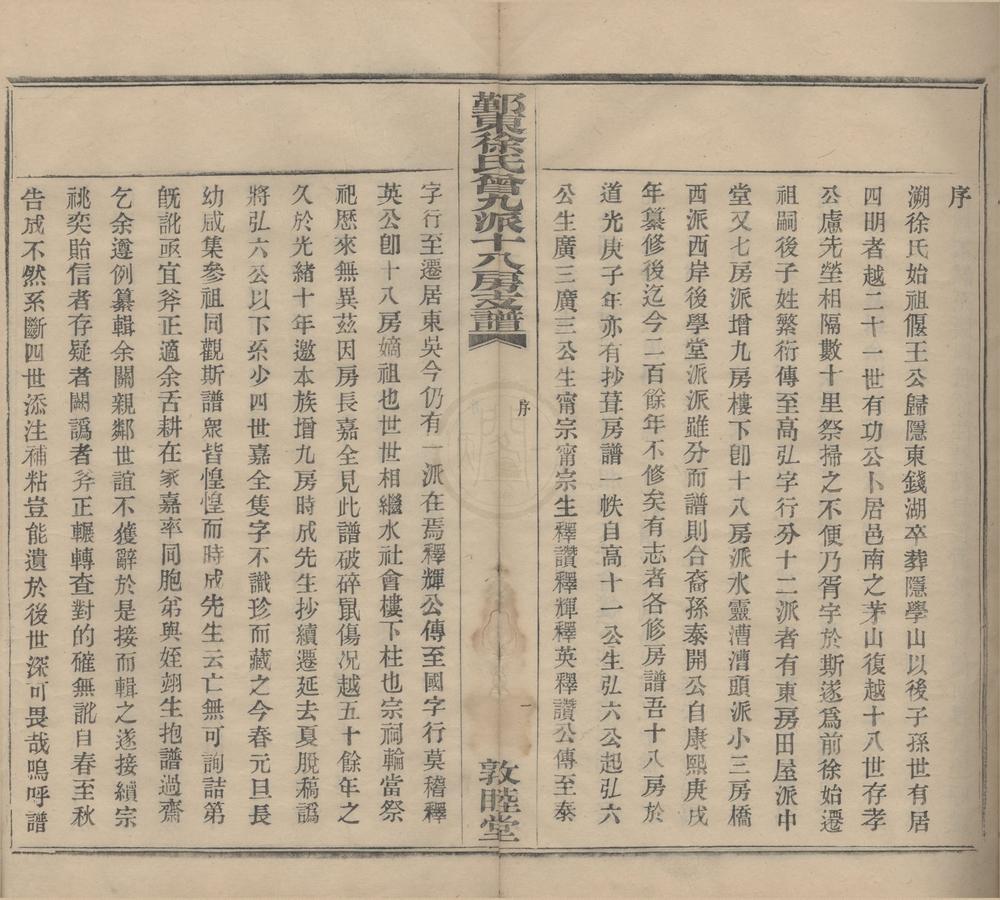 序
溯徐氏始祖偃王公歸隱東錢湖卒葬隱學山以後子孫世有居
四明者越二十一世有功公卜居邑南之茅山復越十八世存孝
公慮先塋相隔數十里祭掃之不便乃胥宇於斯遂爲前徐始遷
祖嗣後子姓繁衍傳至高弘字行分十二派者有東房田屋派中
堂又七房派增九房樓下卽十八房派水靈漕漕頭派小三房橋
西派西岸後學堂派派雖分而譜則合裔孫泰開公自康熙庚戌
年纂修後迄今二百餘年不修矣有志者各修房譜吾十八房於
道光庚子年亦有抄葺房譜一帙自高十一公生弘六公起弘六
公生廣三廣三公生甯宗甯宗生釋讚釋輝釋英釋讚公傳至泰
鄞東徐氏曾九派十八房支譜
序
一
敦睦堂
字行至遷居東吳今仍有一派在焉釋輝公傳至國字行莫稽釋
英公卽十八房嫡祖也世世相繼水社會樓下柱也宗祠輪當祭
祀歷來無異茲因房長嘉全見此譜破碎鼠傷况越五十餘年之
久於光緒十年邀本族增九房時成先生抄續遷延去夏脫稿譌
將弘六公以下系少四世嘉全隻字不識珍而藏之今春元旦長
幼咸集參祖同觀斯譜衆皆惶惶而時成先生云亡無可詢詰第
旣訛亟宜斧正適余舌耕在家嘉率同胞弟與姪翊生抱譜過齋
乞余遵例纂輯余關親鄰世誼不獲辭於是接而輯之遂接續宗
祧奕貽信者存疑者闕譌者斧正輾轉查對的確無訛自春至秋
告成不然系斷四世添注補粘豈能遺於後世深可畏哉嗚呼譜